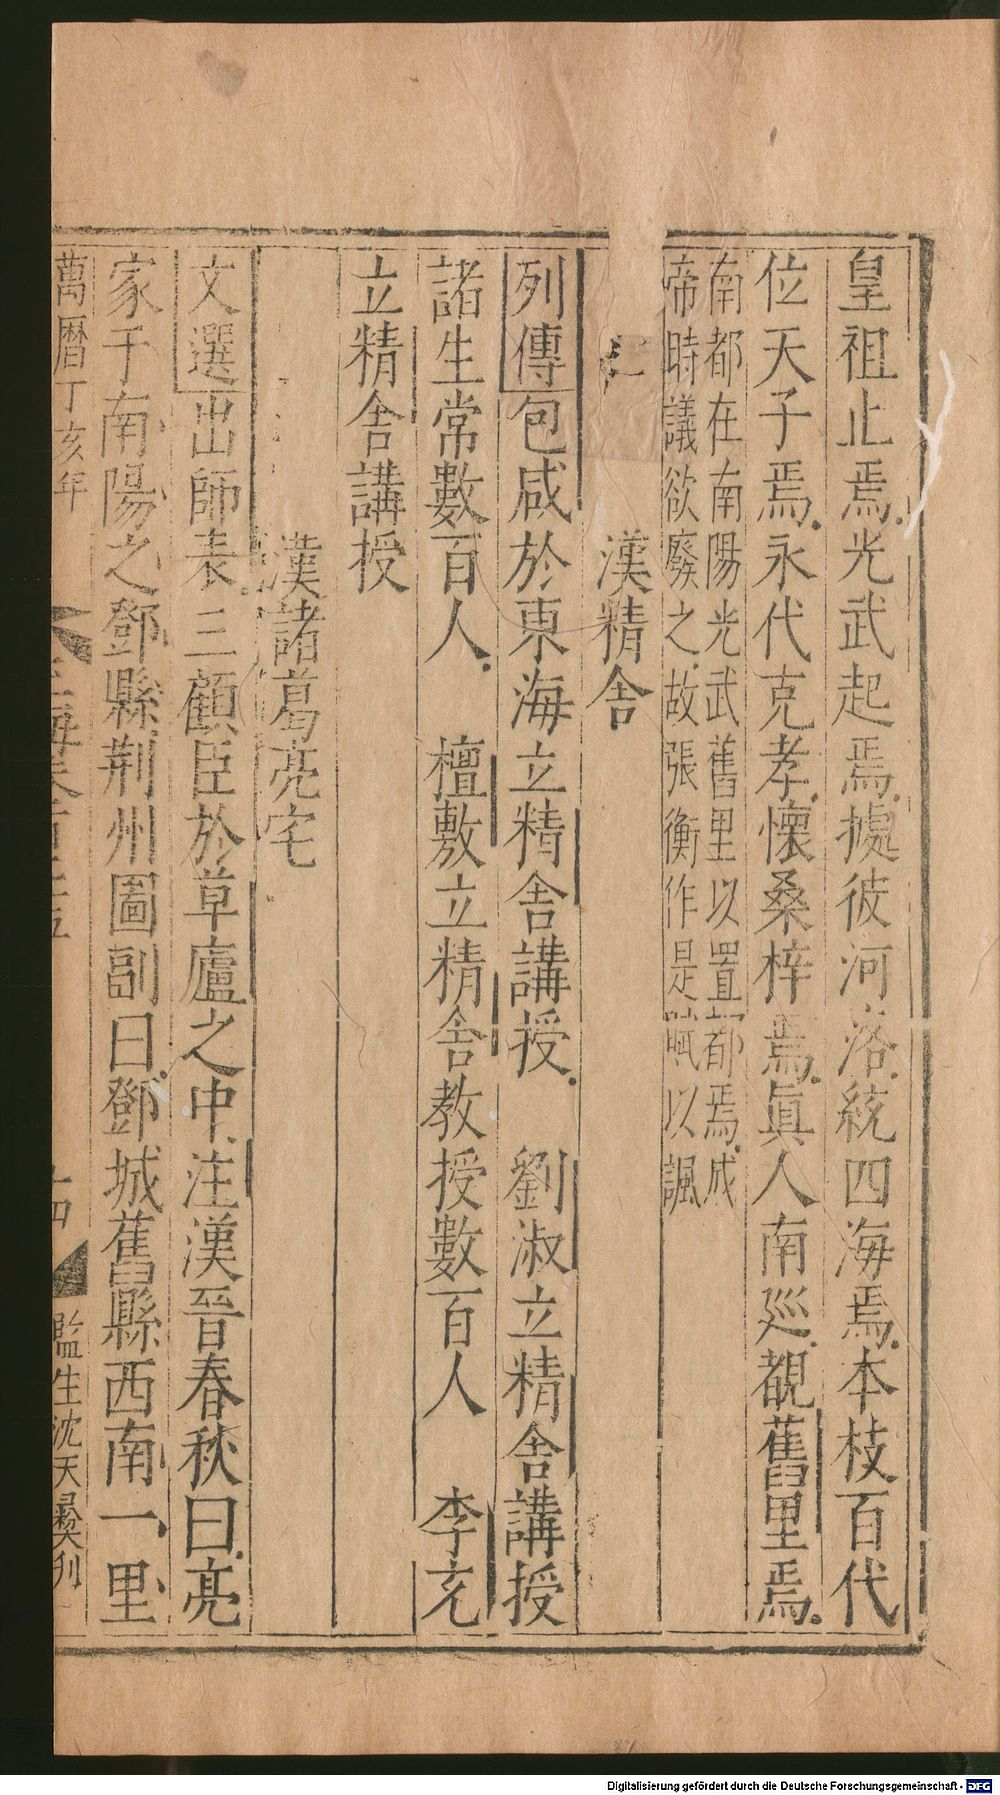 皇祖止焉光武起焉據彼河洛統四海焉本枝百代
位天子焉永代克孝懷桑梓焉眞人南廵覩舊里焉
南都在南陽光武舊里以置都焉成
帝時議欲廢之故張衡作是賦以諷
漢精舍
列傳包咸於東海立精舍講授 劉淑立精舍講授
諸生常數百人 檀敷立精舍教授數百人 李充
立精舍講授
漢諸葛亮宅
文選出師表三顧臣於草廬之中注漢晉春秋曰亮
家于南陽之鄧縣荆州圖副曰鄧城舊縣西南一里
萬曆丁亥年
玉海卷百七十五
十四
監生沈天彝刊
Digitalisierung gefördert durch die Deutsche Forschungsgemeinschaft - DFG